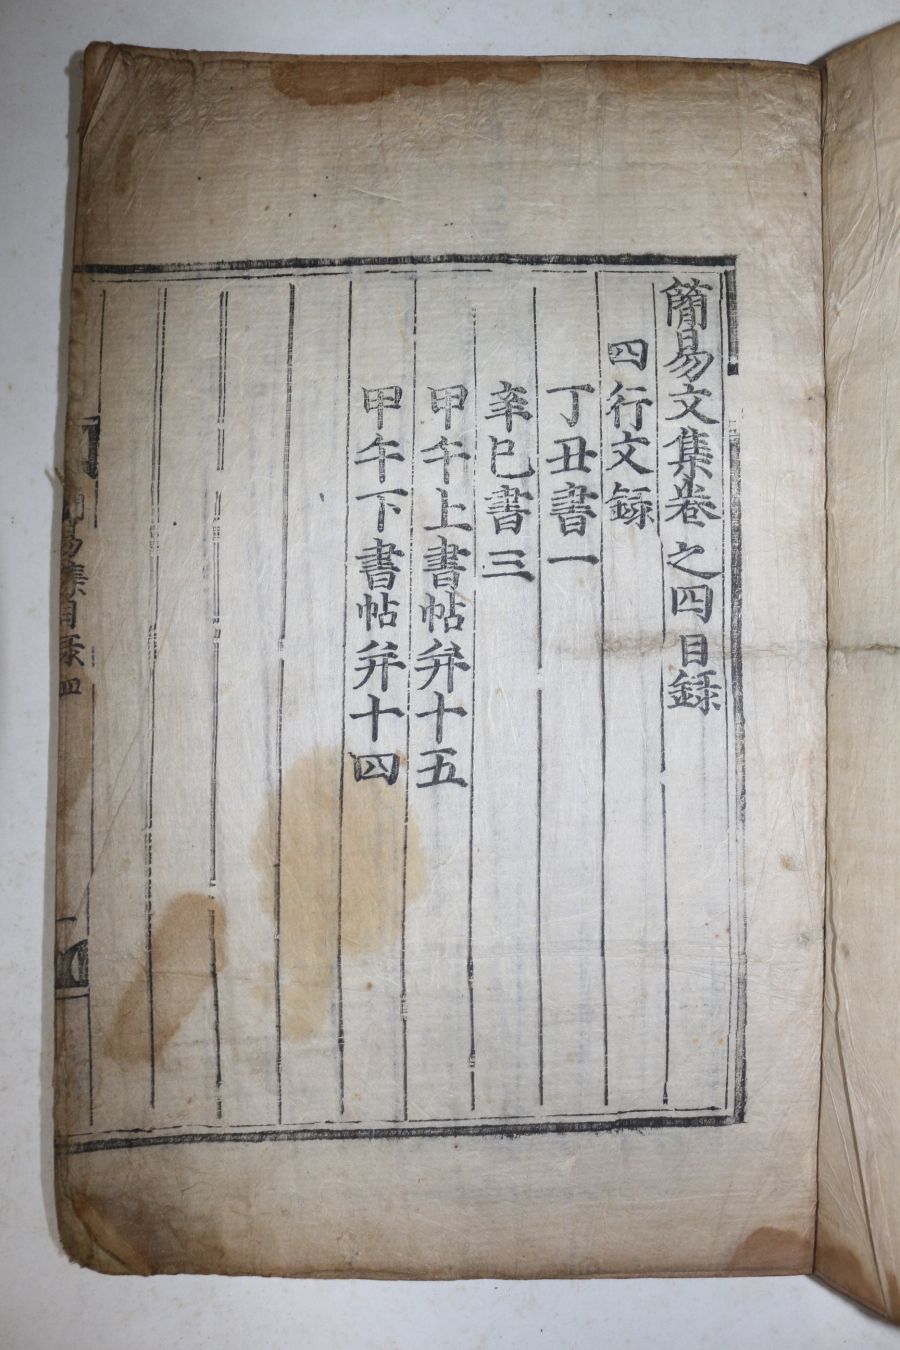 簡易文集卷之四目録
四行文録
丁丑書一
辛巳書三
甲午上書帖并十五
甲午下書帖并十四
易集目録 四